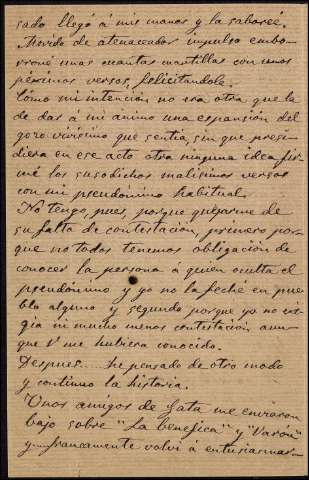 sado llegó á mis manos y la saboreé.
Movido de atenaceador impulso embo-
rroné unas cuantas cuartillas con unos
pésimos versos, felicitandole.
Cómo mi intención no era otra que la
de dar á mi animo una expansión del
gozo vivisimo que sentía, sin que presi-
diera en ese acto otra ninguna idea, fir-
mé los susodichos malisimos versos
con mi pseudónimo habitual.
No tengo, pues, porque quejarme de
su falta de contestación, primero por-
que no todos tenemos obligación de
conocer la persona á quien oculta el
pseudónimo y yo no la feché en pue-
blo alguno y segundo porque yo no exi-
gia ni mucho menos contestación aun-
que V. me hubiera conocido.
Despues.... he pensado de otro modo
y continuo la historia.
Unos amigos de Gata me enviaron
bajo sobre "La benéfica" y "Varón"
y francamente volví á entusiasmar-